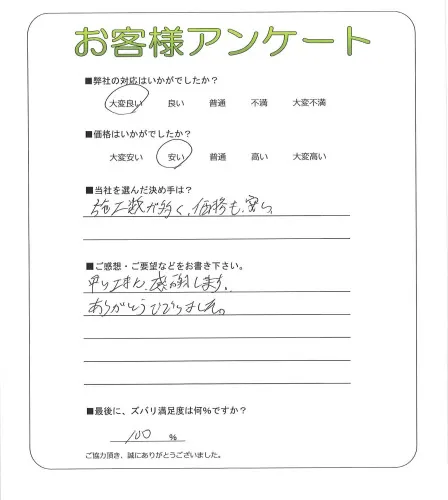 お客様アンケート
■弊社の対応はいかがでしたか?
大変良い 良い 普通 不満 大変不満
■価格はいかがでしたか?
大変安い 安い 普通 高い 大変高い
■当社を選んだ決め手は?
施工数が多く、価格も安い
■ご感想・ご要望などをお書き下さい。
早い工事に感謝します。
ありがとうございました。
■最後に、ズバリ満足度は何%ですか?
100 %
ご協力頂き、誠にありがとうございました。